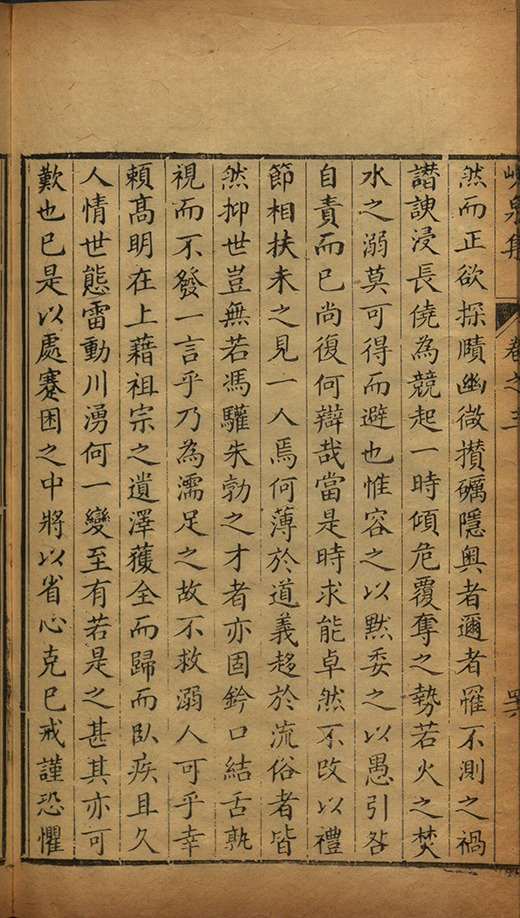 峴泉集 卷之三 四六
然而正欲探賾幽微攢礪隱奧者邇者罹不測之禍
譖諛浸長僥為競起一時傾危覆奪之勢若火之焚
水之溺莫可得而避也惟容之以默委之以愚引咎
自責而已尚復何辯哉當是時求能卓然不改以禮
節相扶未之見一人焉何薄於道義趍於流俗者皆
然抑世豈無若馮驩朱勃之才者亦固鈐口結舌孰
視而不發一言乎乃為濡足之故不救溺人可乎幸
頼高明在上藉祖宗之遺澤獲全而歸而臥疾且久
人情世態雷動川湧何一變至有若是之甚其亦可
歎也已是以處蹇困之中將以省心克已戒謹恐懼